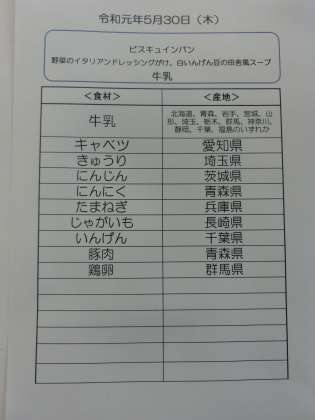 令和元年5月30日（木）
ビスキュインパン
野菜のイタリアンドレッシングがけ、白いんげん豆の田舎風スープ
牛乳
＜食材＞ ＜産地＞
牛乳 北海道、青森、岩手、宮城、山
形、埼玉、栃木、群馬、神奈川、
静岡、千葉、福島のいずれか
キャベツ 愛知県
きゅうり 埼玉県
にんじん 茨城県
にんにく 青森県
たまねぎ 兵庫県
じゃがいも 長崎県
いんげん 千葉県
豚肉 青森県
鶏卵 群馬県